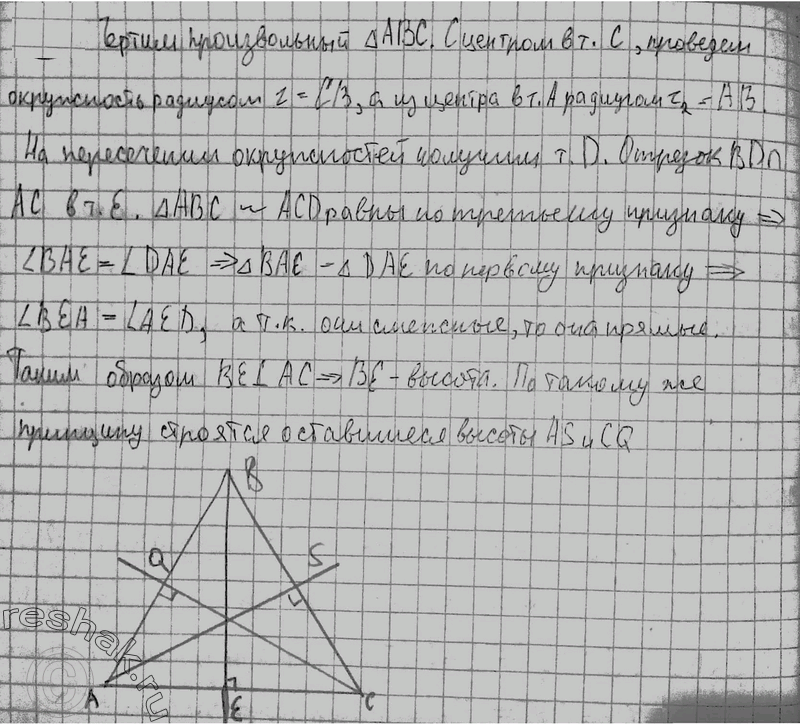 Чертим произвольный △ABC. С центром в т. С, проведем
окружность радиусом r = CB, а из центра в т. А радиусом r₂ = AB.
На пересечении окружностей получим т. D. Отрезок BD∩
AC в т. E. △ABC и ACD равны по третьему признаку ⇒
∠BAE = ∠DAE ⇒ △BAE = △DAE по первому признаку ⇒
∠BEA = ∠AED, а т.к. они смежные, то она прямые.
Таким образом BE⊥AC ⇒ BE - высота. По такому же
принципу строятся оставшиеся высоты AS и CQ
B
Q S
A E C
reshak.ru